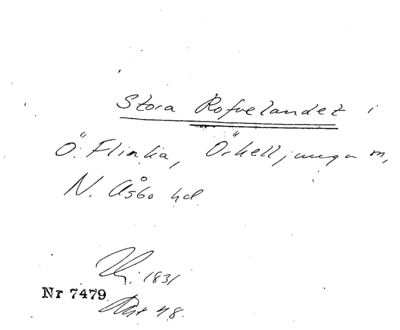 Stora Rofvelandet i
Ö. Flinka, Örkelljunga m,
N. Åsbo hd
1831
Nr 7479
48.